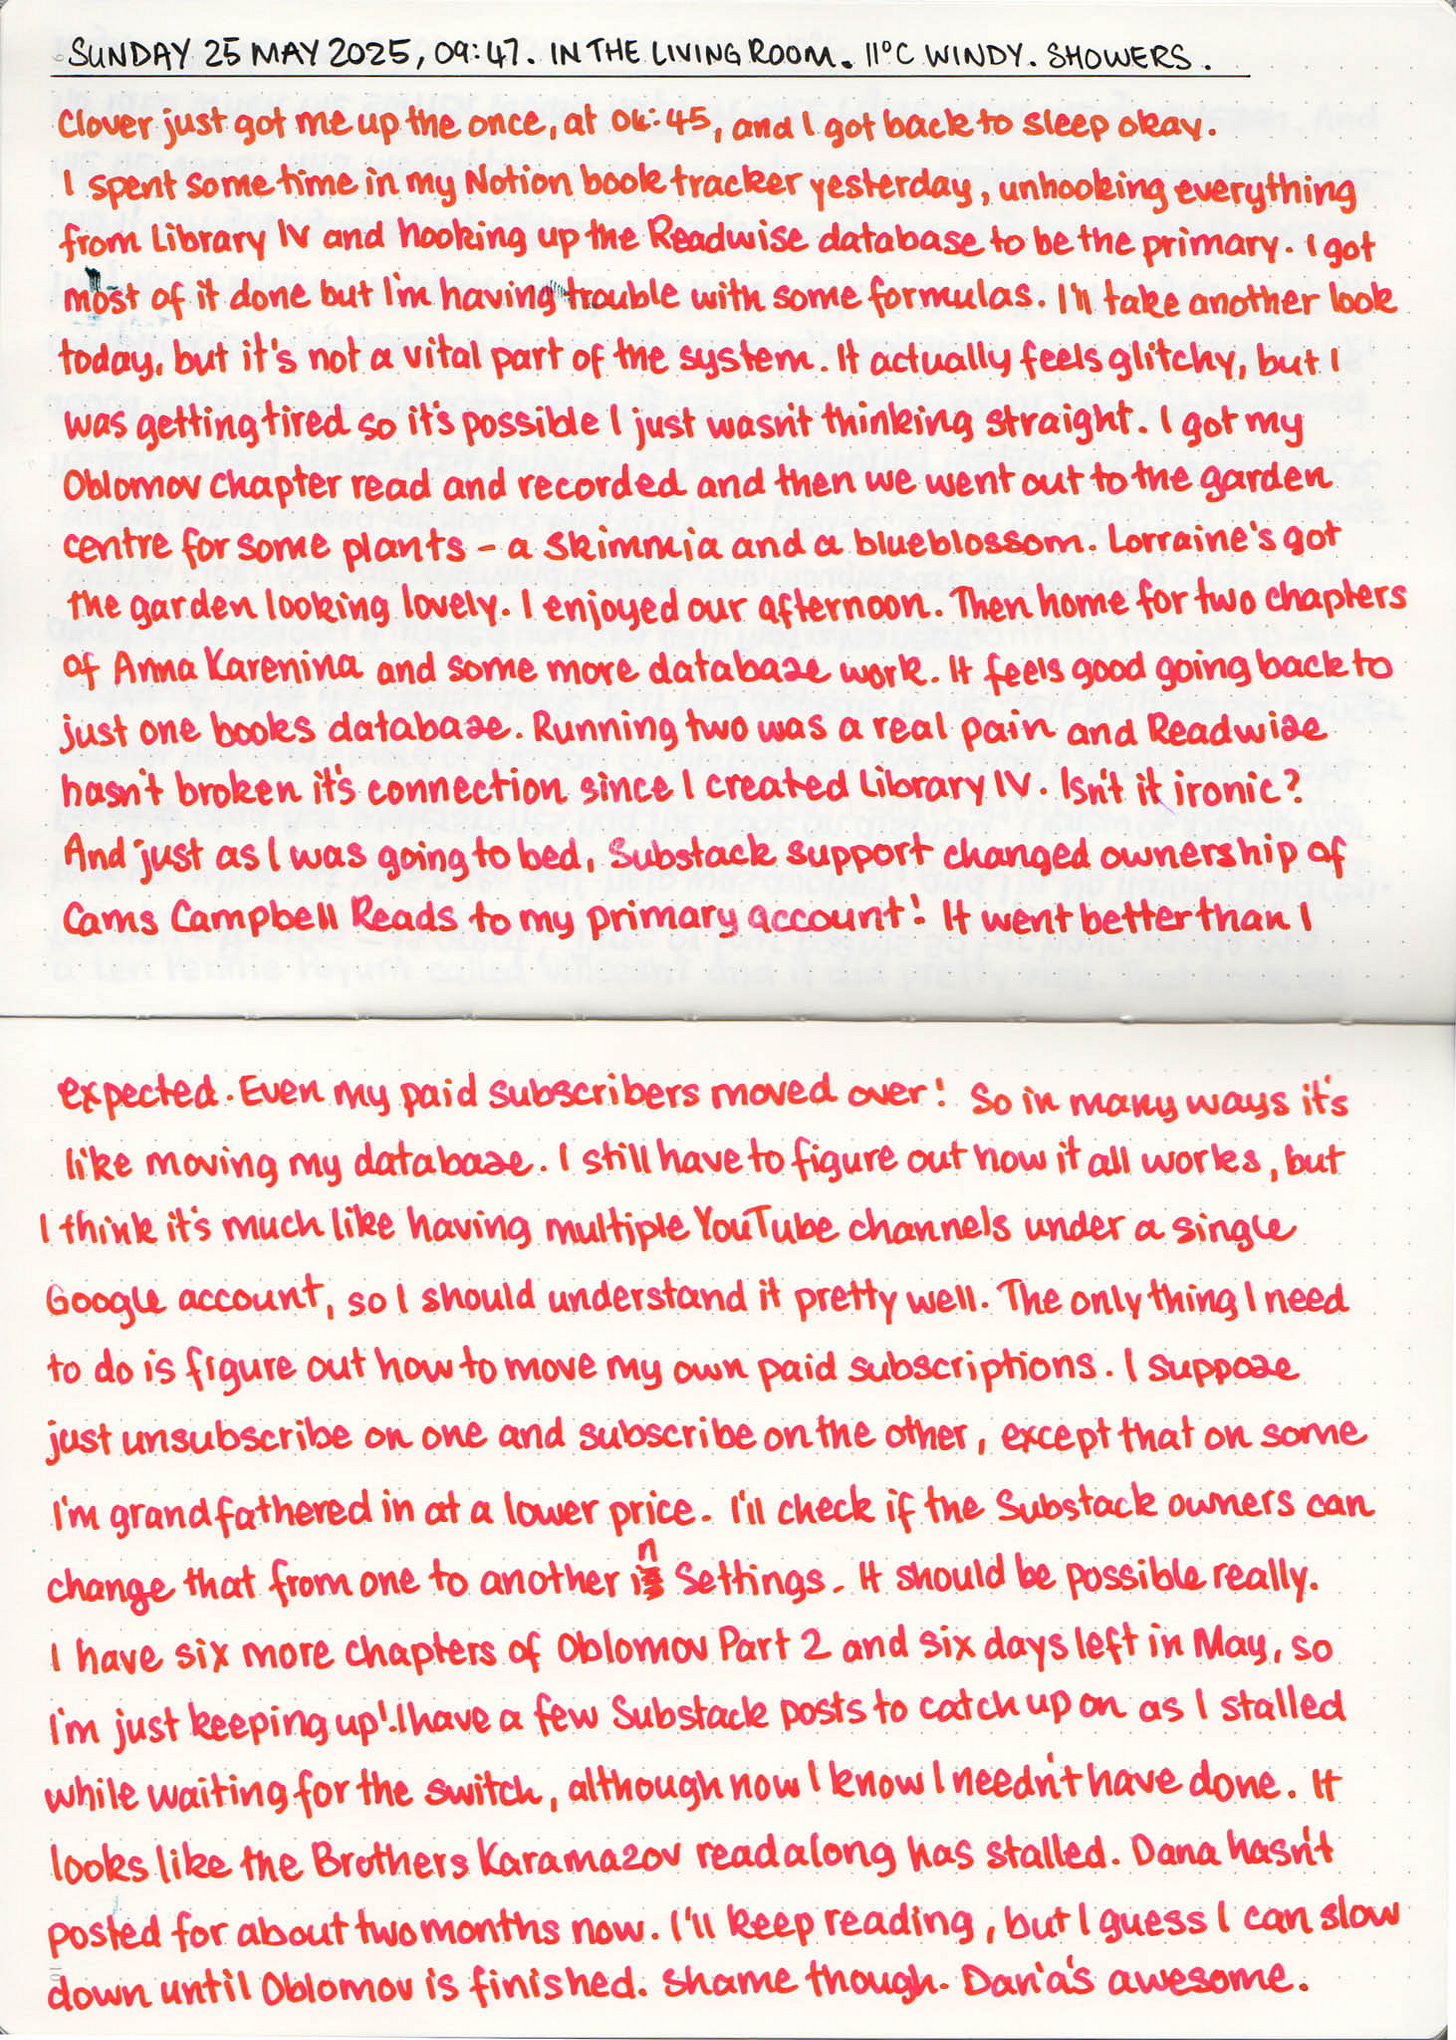 SUNDAY 25 MAY 2025, 09:47. IN THE LIVING ROOM. 11°C WINDY. SHOWERS.
Clover just got me up the once, at 04:45, and I got back to sleep okay.
I spent some time in my Notion book tracker yesterday, unhooking everything
from Library IV and hooking up the Readwise database to be the primary. I got
most of it done but I'm having trouble with some formulas. I'll take another look
today, but it's not a vital part of the system. It actually feels glitchy, but I
was getting tired so it's possible I just wasn't thinking straight. I got my
Oblomov chapter read and recorded and then we went out to the garden
centre for some plants - a skimmia and a blueblossom. Lorraine's got
the garden looking lovely. I enjoyed our afternoon. Then home for two chapters
of Anna Karenina and some more database work. It feels good going back to
just one books database. Running two was a real pain and Readwise
hasn't broken it's connection since I created Library IV. Isn't it ironic?
And just as I was going to bed, Substack support changed ownership of
Cams Campbell Reads to my primary account! It went better than I
expected. Even my paid subscribers moved over! So in many ways it's
like moving my database. I still have to figure out how it all works, but
I think it's much like having multiple YouTube channels under a single
Google account, so I should understand it pretty well. The only thing I need
to do is figure out how to move my own paid subscriptions. I suppose
just unsubscribe on one and subscribe on the other, except that on some
I'm grandfathered in at a lower price. I'll check if the Substack owners can
change that from one to another in Settings. It should be possible really.
I have six more chapters of Oblomov Part 2 and six days left in May, so
I'm just keeping up! I have a few Substack posts to catch up on as I stalled
while waiting for the switch, although now I know I needn't have done. It
looks like the Brothers Karamazov readalong has stalled. Dana hasn't
posted for about two months now. I'll keep reading, but I guess I can slow
down until Oblomov is finished. Shame though. Dana's awesome.